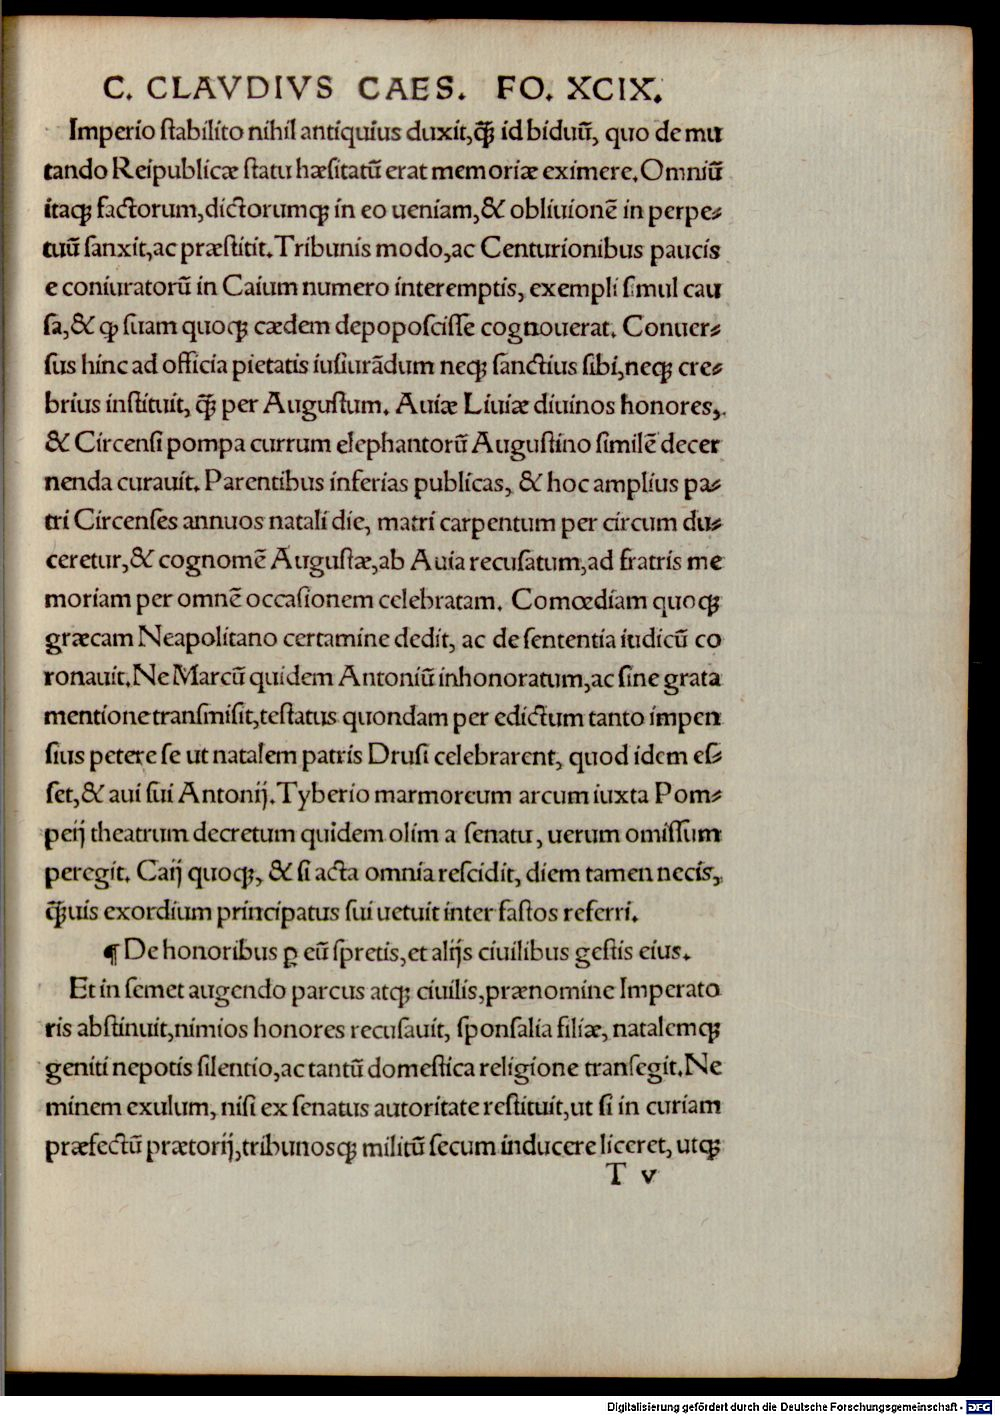 C. CLAVDIVS CAES. FO. XCIX.
Imperio ſtabilito nihil antiquius duxit,q̃ꝫ id biduũ, quo de mu
tando Reipublicæ ſtatu hæſitatũ erat memoriæ eximere. Omniũ
itaqꝫ factorum,dictorumqꝫ in eo ueniam,& obliuionẽ in perpe⸗
tuũ ſanxit,ac præſtitit. Tribunis modo,ac Centurionibus paucis
e coniuratorũ in Caium numero interemptis, exempli ſimul cau
ſa,& ꝙ ſuam quoqꝫ cædem depopoſciſſe cognouerat. Conuer⸗
ſus hinc ad officia pietatis iuſiurãdum neqꝫ ſanctius ſibi,neqꝫ cre⸗
brius inſtituit, q̃ꝫ per Auguſtum. Auiæ Liuiæ diuinos honores,
& Circenſi pompa currum elephantorũ Auguſtino ſimilẽ decer
nenda curauit. Parentibus inferias publicas, & hoc amplius pa⸗
tri Circenſes annuos natali die, matri carpentum per circum du⸗
ceretur,& cognomẽ Auguſtæ,ab Auia recuſatum,ad fratris me
moriam per omnẽ occaſionem celebratam. Comœdiam quoqꝫ
græcam Neapolitano certamine dedit, ac de ſententia iudicũ co
ronauit. Ne Marcũ quidem Antoniũ inhonoratum,ac ſine grata
mentione tranſmiſit,teſtatus quondam per edictum tanto impen
ſius petere ſe ut natalem patris Druſi celebrarent, quod idem eſ⸗
ſet,& aui ſui Antonij. Tyberio marmoreum arcum iuxta Pom⸗
peij theatrum decretum quidem olim a ſenatu, uerum omiſſum
peregit. Caij quoqꝫ, & ſi acta omnia reſcidit, diem tamen necis,
q̃ꝫuis exordium principatus ſui uetuit inter faſtos referri.
¶ De honoribus ꝑ eũ ſpretis,et alijs ciuilibus geſtis eius.
Et in ſemet augendo parcus atqꝫ ciuilis,prænomine Imperato
ris abſtinuit,nimios honores recuſauit, ſponſalia filiæ, natalemqꝫ
geniti nepotis ſilentio,ac tantũ domeſtica religione tranſegit. Ne
minem exulum, niſi ex ſenatus autoritate reſtituit,ut ſi in curiam
præfectũ prætorij,tribunosqꝫ militũ ſecum inducere liceret, utqꝫ
T v
Digitalisierung gefördert durch die Deutsche Forschungsgemeinschaft - DFG